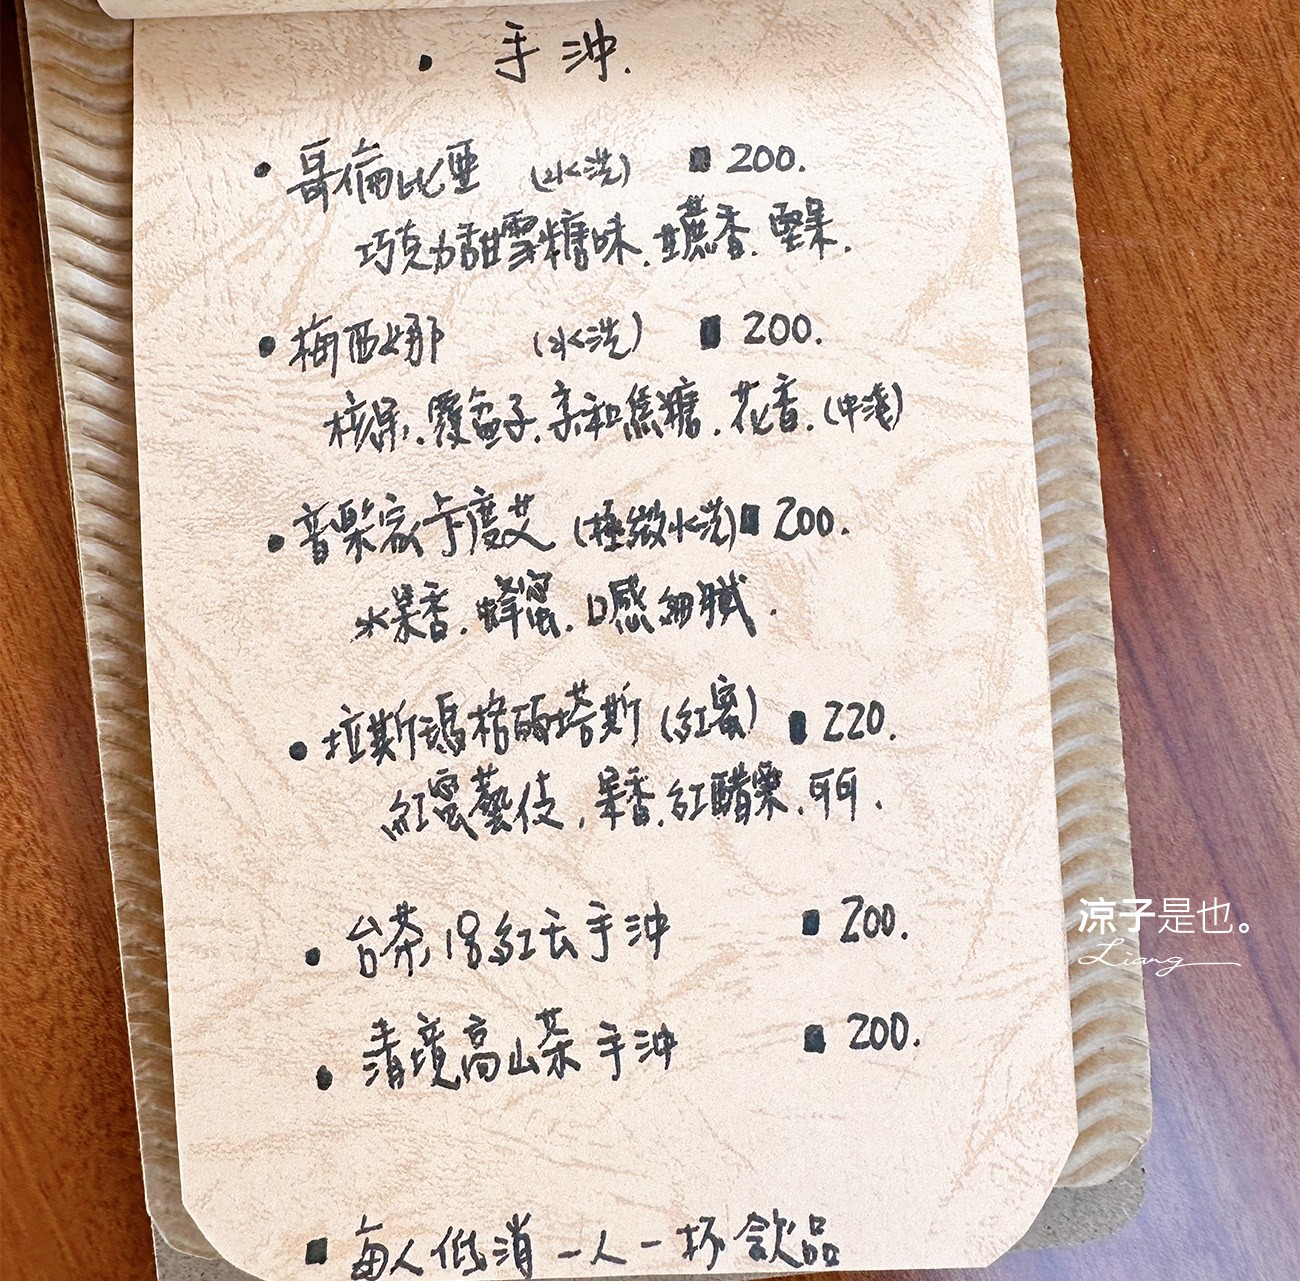 • 手沖.
• 哥倫比亞 (水洗) ■ 200.
巧克力甜雪糖味.蔗香.堅果.
• 梅西娜 (水洗) ■ 200.
核果.覆盆子.焦糖.花香.(中淺)
• 音樂家卡度艾 (極緻水洗) ■ 200.
水果香.蜂蜜.口感細膩.
• 拉斯瑪格碼塔斯 (紅蜜) ■ 220.
紅蜜藝伎.果香.紅醋栗.可可.
• 台茶18紅玉手沖 ■ 200.
• 清境高山茶手沖 ■ 200.
■ 每人低消一人一杯飲品
涼子是也。
Liang